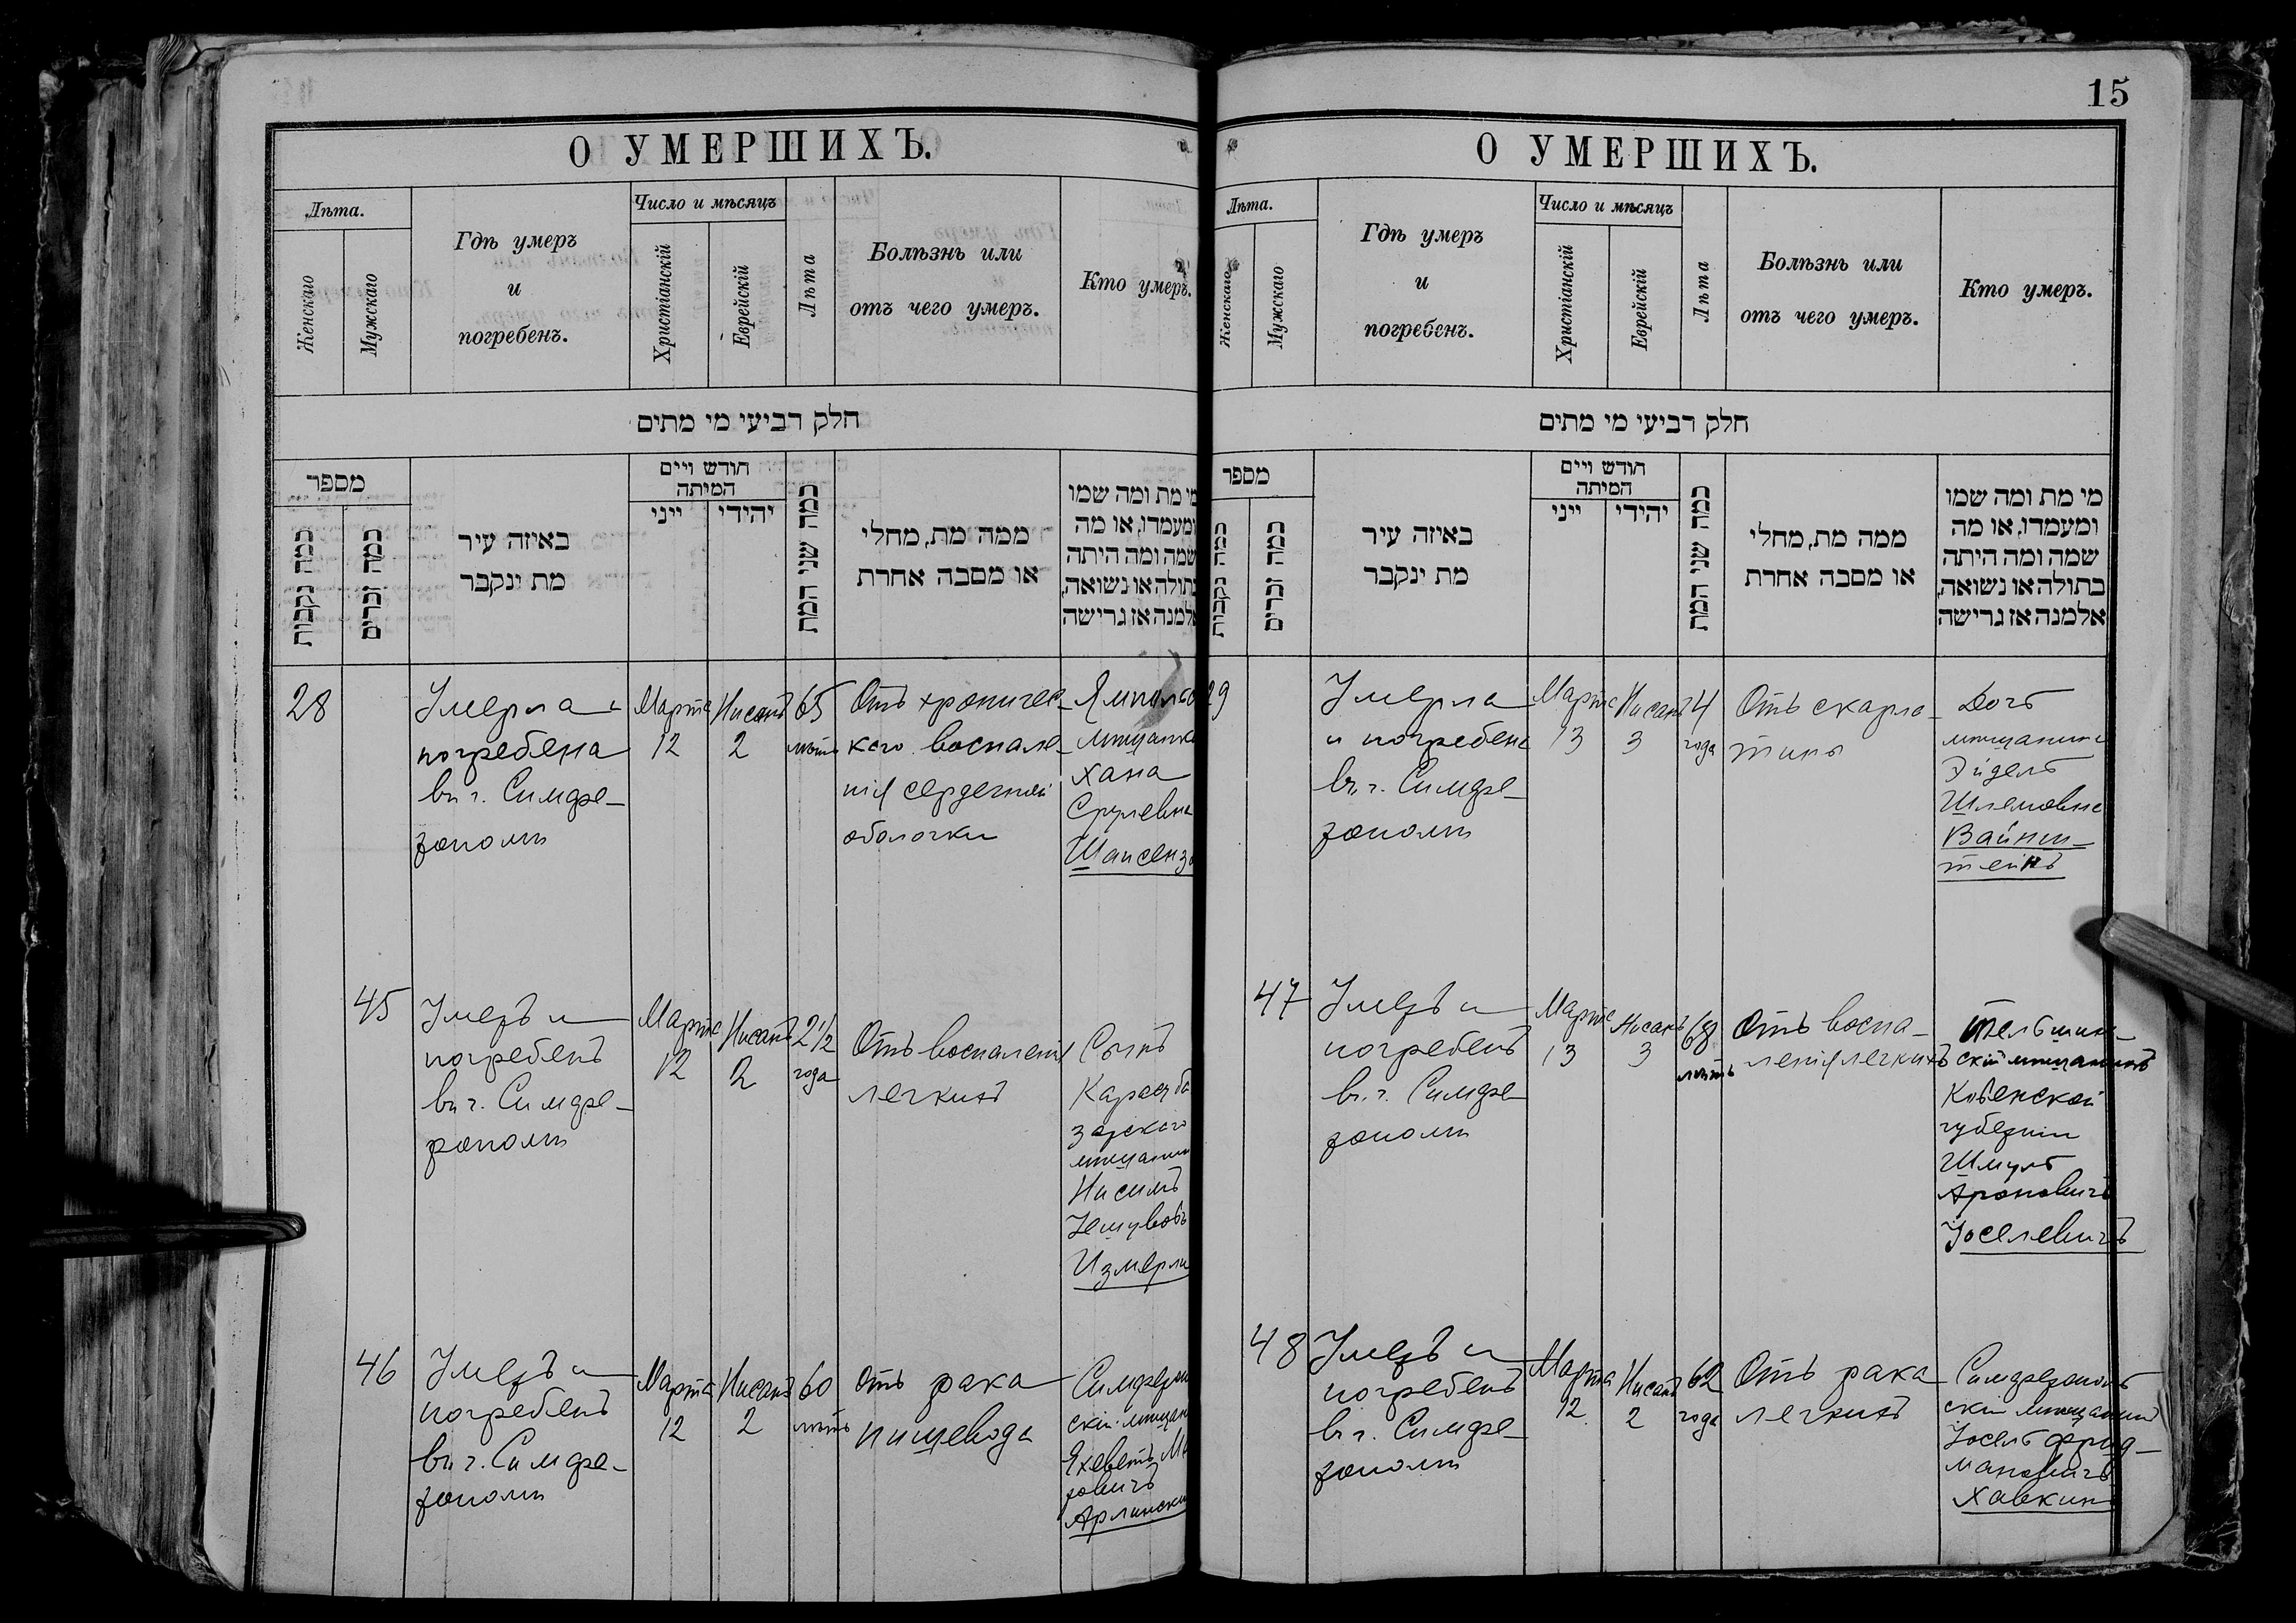 О УМЕРШИХЪ.
Лѣта.
Женскаго
Мужскаго
Гдѣ умеръ
и
погребенъ.
Число и мѣсяцъ
Христіанскій
Еврейскій
Лѣта
Болѣзнь или
отъ чего умеръ.
Кто умеръ.
חלק רביעי מי מתים
מספר
כמה נקבות
כמה זכרים
באיזה עיר
מת ינקבר
חודש ויים
המיתה
ייני
יהידי
כמה שני המת
ממה מת, מחלי
או מסבה אחרת
מי מת ומה שמו
ומעמדו, או מה
שמה ומה היתה
בתולה או נשואה,
אלמנה אז גרישה
28
Умерла и
погребена
въ г. Симфе-
рополѣ
Марта
12
Нисанъ
2
65
лѣтъ
Отъ хроничес-
каго воспале-
нія сердечной
оболочки
мѣщанка
Хана
Срулевна
45
Умеръ и
погребенъ
въ г. Симфе-
рополѣ
Марта
12
Нисанъ
2
2 1/2
года
Отъ воспаленія
легкихъ
Сынъ
Карасуба
зарскаго
мѣщанин
Нисимъ
Измерли
46
Умеръ и
погребенъ
въ г. Симфе-
рополѣ
Марта
12
Нисанъ
2
60
лѣтъ
Отъ рака
пищевода
Симферопо
скій мѣщан
ровичъ
Арлински
15
О УМЕРШИХЪ.
Лѣта.
Женскаго
Мужскаго
Гдѣ умеръ
и
погребенъ.
Число и мѣсяцъ
Христіанскій
Еврейскій
Лѣта
Болѣзнь или
отъ чего умеръ.
Кто умеръ.
חלק רביעי מי מתים
מספר
כמה נקבות
כמה זכרים
באיזה עיר
מת ינקבר
חודש ויים
המיתה
ייני
יהידי
כמה שני המת
ממה מת, מחלי
או מסבה אחרת
מי מת ומה שמו
ומעמדו, או מה
שמה ומה היתה
בתולה או נשואה,
אלמנה אז גרישה
29
Умерла
и погребена
въ г. Симфе-
рополѣ
Марта
13
Нисанъ
3
4
года
Отъ скарла-
тины
Дочь
мѣщанина
Эйдель
Шлемовна
Вайнш-
тейнъ
47
Умеръ и
погребенъ
въ г. Симфе-
рополѣ
Марта
13
Нисанъ
3
68
лѣтъ
Отъ воспа-
ленія легкихъ
Тельшин-
скій мѣщанинъ
Ковенской
губерніи
Шмуль
Ароновичъ
Іоселевичъ
48
Умеръ и
погребенъ
въ г. Симфе-
рополѣ
Марта
12
Нисанъ
2
62
года
Отъ рака
легкихъ
Симферополь
скій мѣщанинъ
Іосель Фрид-
мановичъ
Хавкин